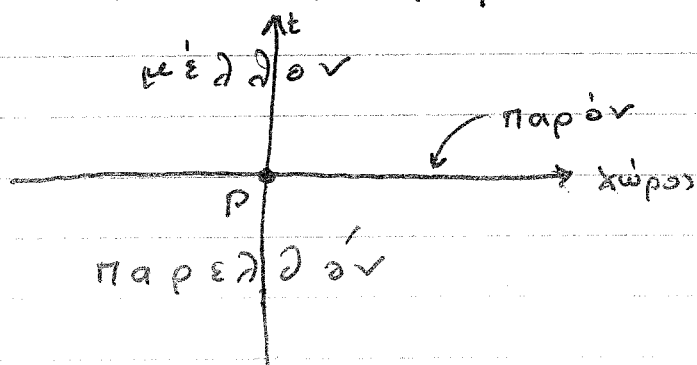 t
μέλλον
παρόν
χώρος
P
παρελθόν